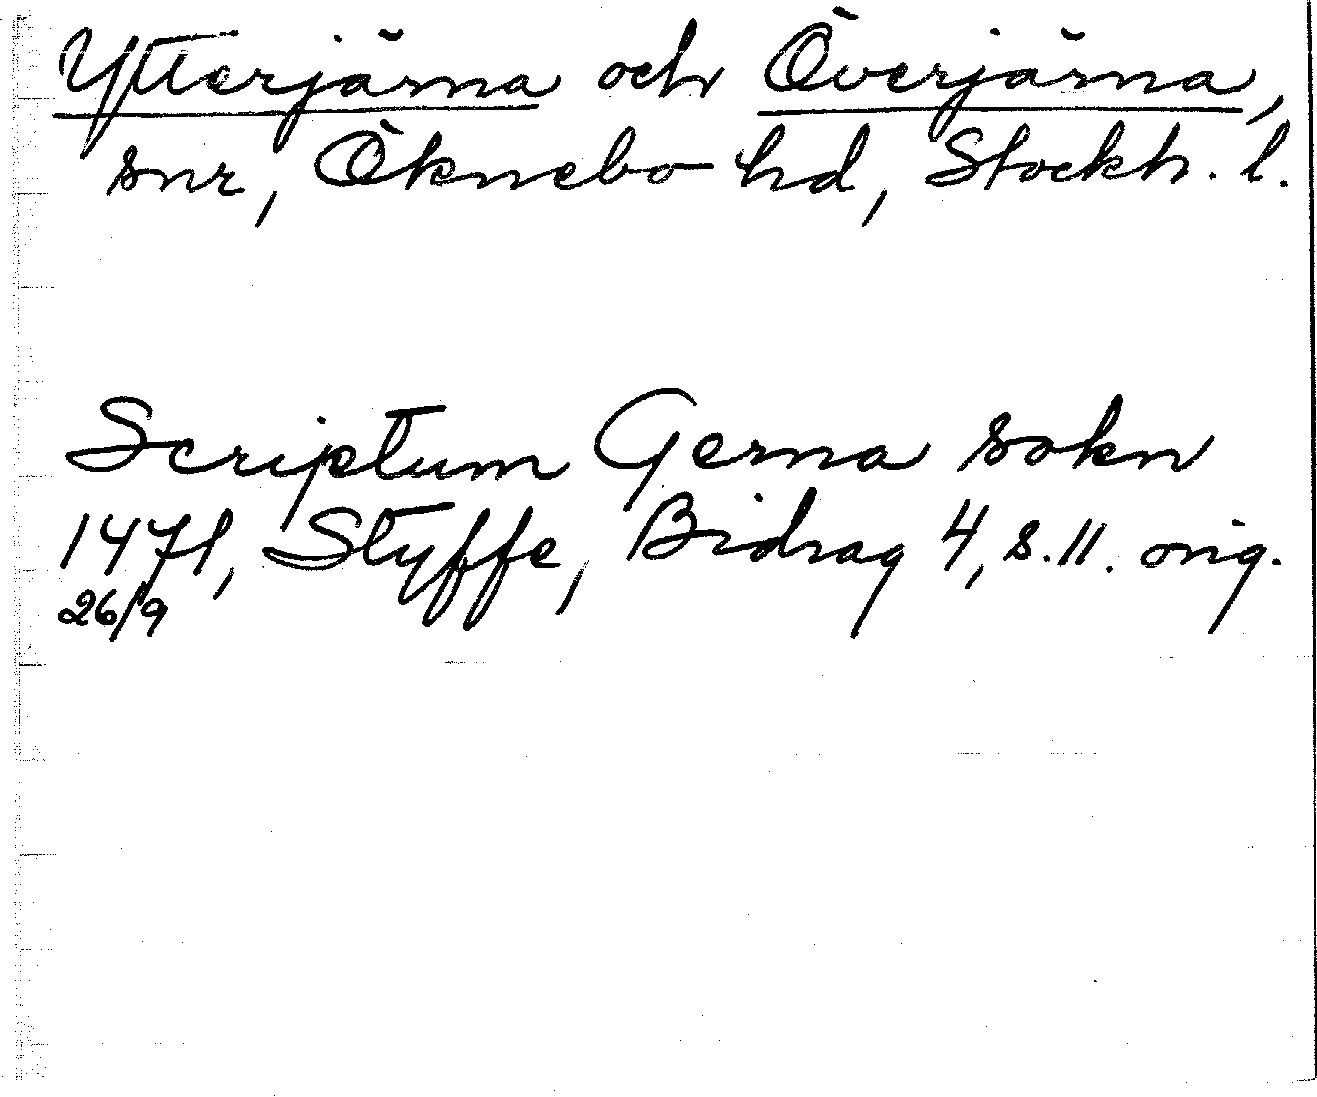 Ytterjärna och Överjärna,
snr, Öknebo hd, Stockh. l.
Scriptum Gerna sokn
1471, Styffe, Bidrag 4, s. 11. orig.
26/9